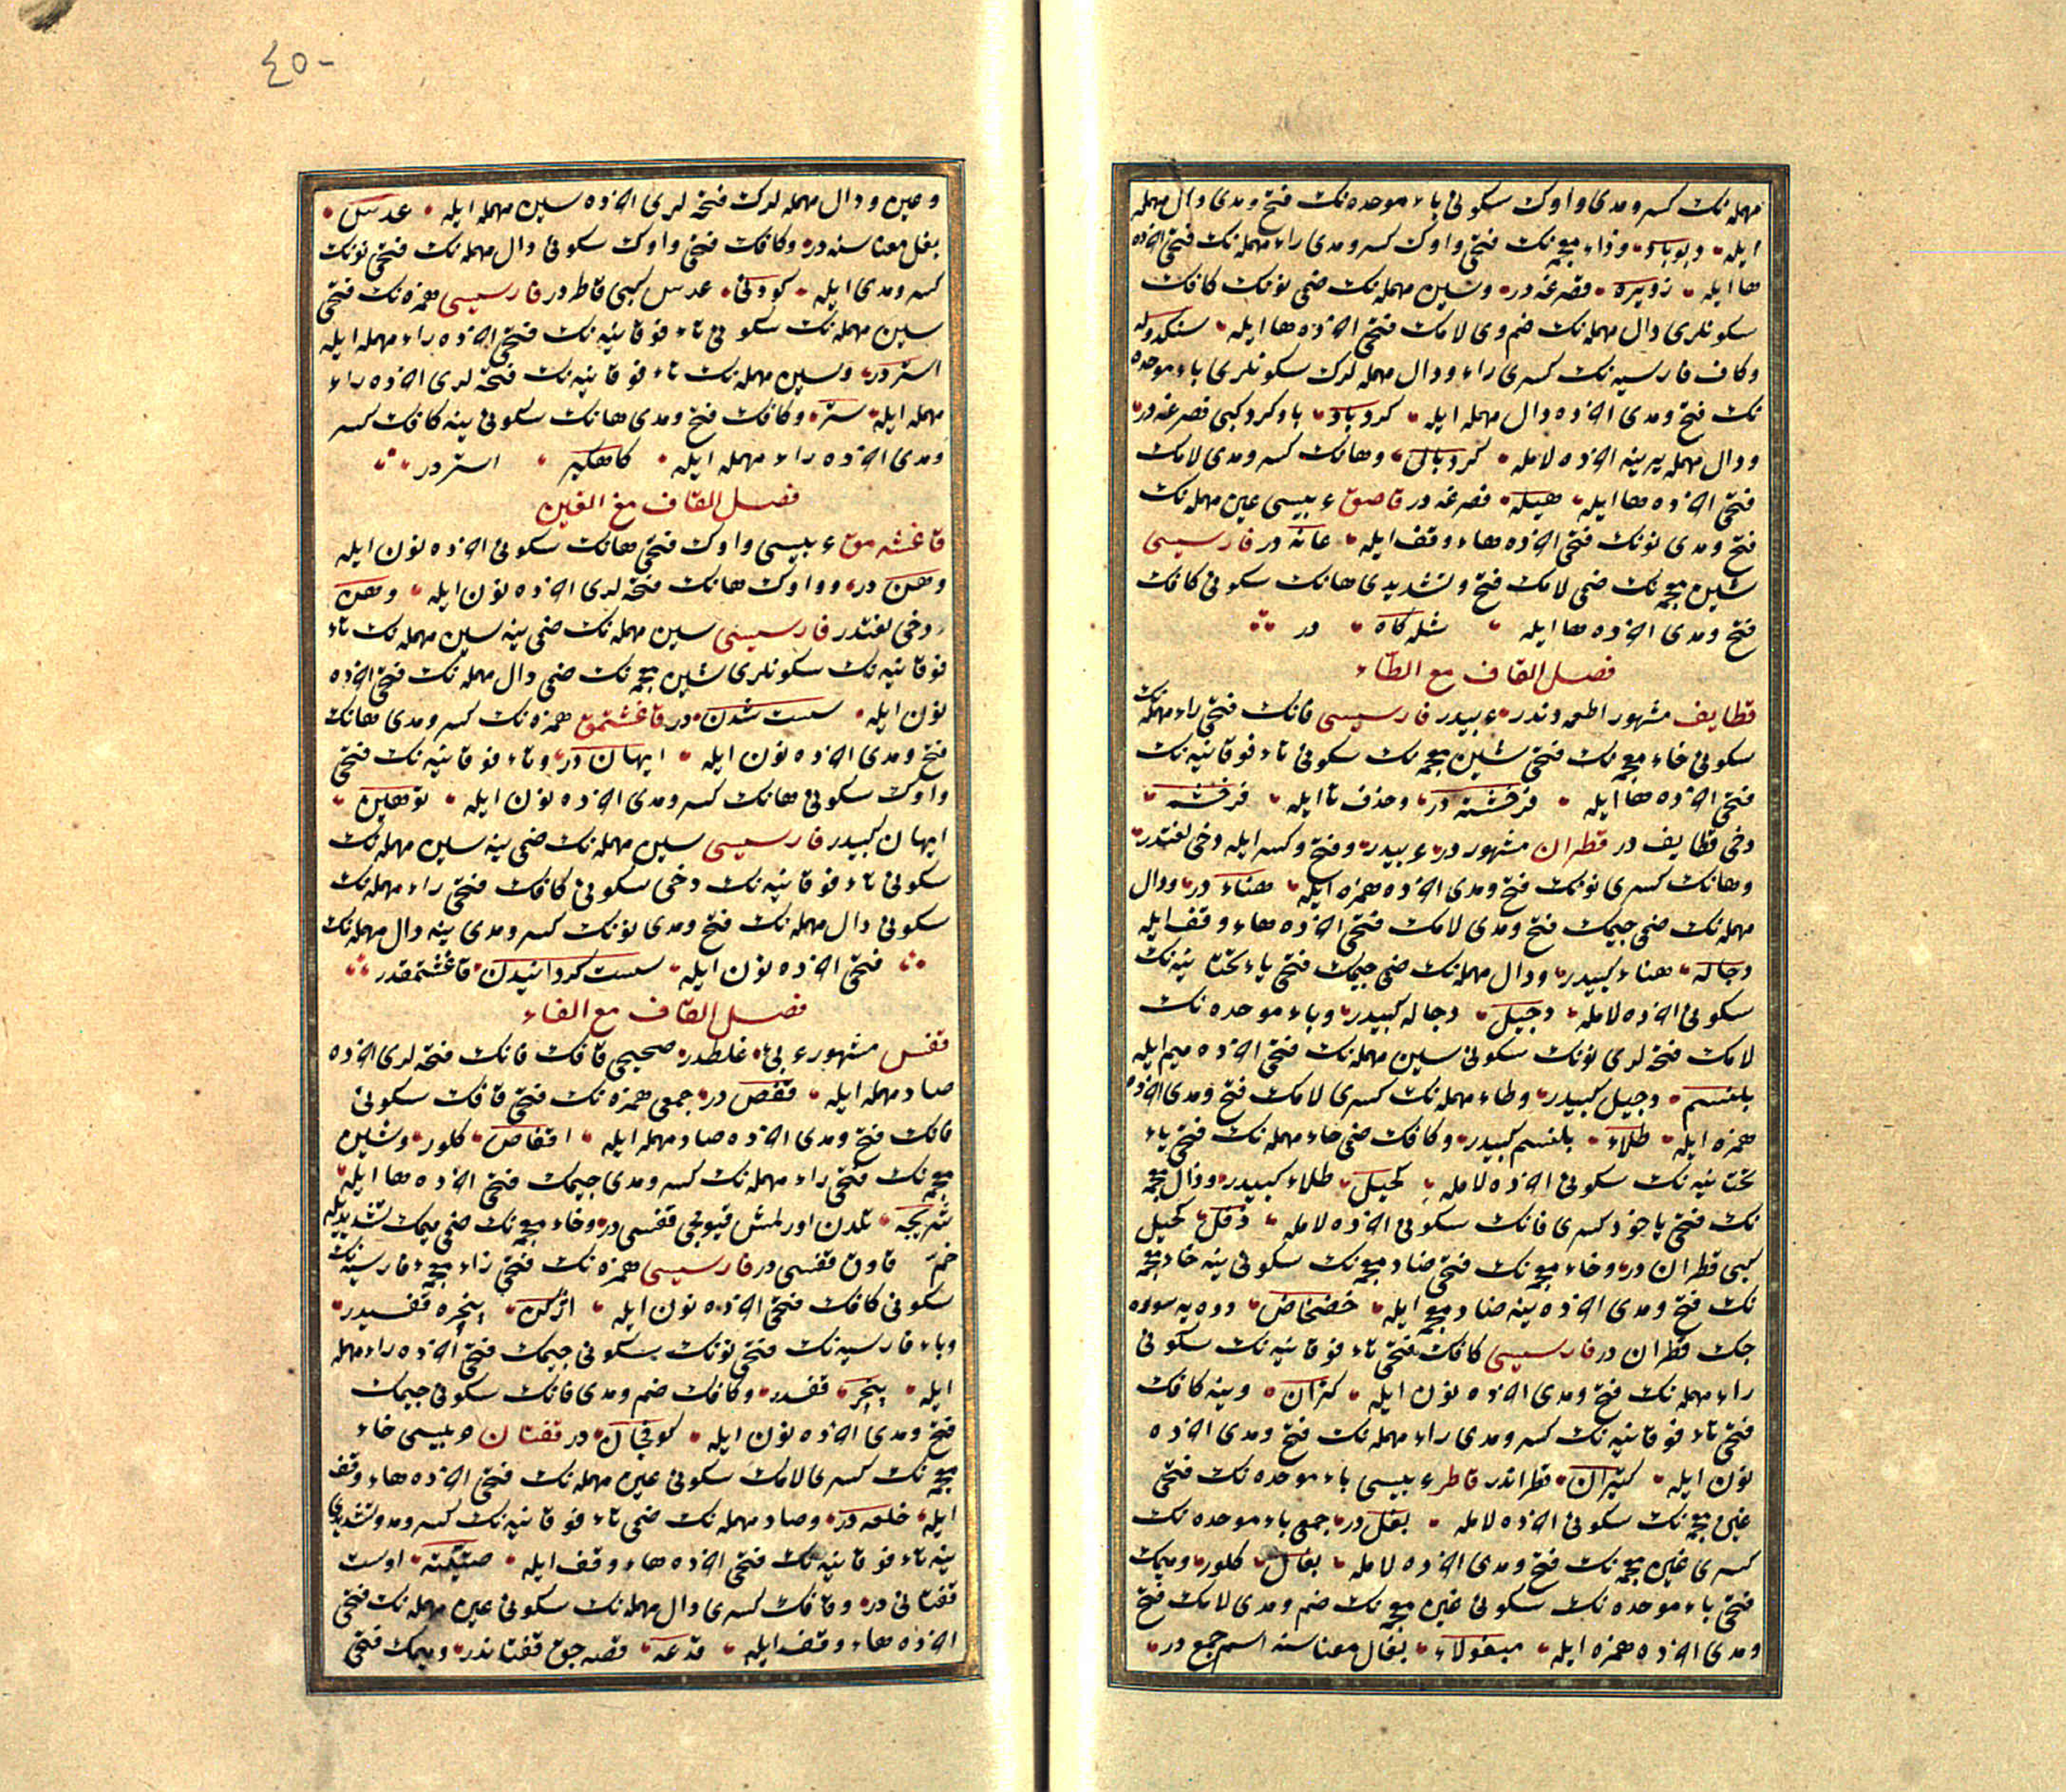 مهمله نك كسر و مدی واوك سكونی باء موحده نك فتح و مدی دال مهمله
ایله دیوباد وزاء معجمه نك فتحی واوك كسر و مدی راء مهمله نك فتحی آخرده
ها ایله زویره قصرغه در وسین مهمله نك ضمی نونك كافك
سكونلری دال مهمله نك ضم وی لامك فتحی آخرده ها ایله سنكدوله
وكاف فارسیه نك كسری راء ودال مهمله لرك سكونلری باء موحده
نك فتح و مدی آخرده دال مهمله ایله كردباد باوكرد كبی قصرغه در
ودال مهمله یرینه آخرده لامله كردبال وهانك كسر و مدی لامك
فتحی آخرده ها ایله هیله قصرغه در قاصق ء بیسی عین مهمله نك
فتح و مدی نونك فتحی آخرده هاء وقف ایله عانه در فارسیسی
شین معجمه نك ضمی لامك فتح و تشدیدی هانك سكونی كافك
فتح و مدی آخرده ها ایله شله كاه در
فصل القاف مع الطاء
قطایف مشهور اطعمه دندر ء بیدر فارسیسی فانك فتحی راء مهمله نك
سكونی خاء معجمه نك فتحی شین معجمه نك سكونی تاء فوقانیه نك
فتحی آخرده ها ایله فرخشته در وحذف تا ایله فرخشه
دخی قطایف در قطران مشهور در ء بیدر وفتح وكسر ایله دخی لغتدر
وهانك كسری نونك فتح و مدی آخرده همزه ایله هناء در ودال
مهمله نك ضمی جیمك فتح و مدی لامك فتحی آخرده هاء وقف ایله
دجاله هناء كبیدر ودال مهمله نك ضمی جیمك فتحی یاء تحتانیه نك
سكونی آخرده لامله دجیل دجاله كبیدر وباء موحده نك
لامك فتحه لری نونك سكونی سین مهمله نك فتحی آخرده میم ایله
بلنسم دجیل كبیدر وطاء مهمله نك كسری لامك فتح و مدی آخرده
همزه ایله طلاء بلنسم كبیدر وكافك ضمی حاء مهمله نك فتحی یاء
تحتانیه نك سكونی آخرده لامله كحیل طلاء كبیدر وذال معجمه
نك فتحی یاخود كسری فانك سكونی آخرده لامله ذفل كحیل
كبی قطران در وخاء معجمه نك فتحی ضاد معجمه نك سكونی ینه خاء معجمه
نك فتح و مدی آخرده ینه ضاد معجمه ایله خضخاض دوه یه سوره
جك قطران در فارسیسی كافك فتحی تاء فوقانیه نك سكونی
راء مهمله نك فتح و مدی آخرده نون ایله كتران وینه كافك
فتحی تاء فوقانیه نك كسر و مدی راء مهمله نك فتح و مدی آخرده
نون ایله كتیران قطراندر قاطر ء بیسی باء موحده نك فتحی
غین معجمه نك سكونی آخرده لامله بغل در جمعی باء موحده نك
كسری غین معجمه نك فتح و مدی آخرده لامله بغال كلور ومیمك
فتحی باء موحده نك سكونی غین معجمه نك ضم و مدی لامك فتح
و مدی آخرده همزه ایله مبغولاء بغال معناسنه اسم جمع در
٤٥٠
وعین ودال مهمله لرك فتحه لری آخرده سین مهمله ایله عدس
بغل معناسنه در وكافك فتحی واوك سكونی دال مهمله نك فتحی نونك
كسر و مدی ایله كودنی عدس كبی قاطر در فارسیسی همزه نك فتحی
سین مهمله نك سكونی تاء فوقانیه نك فتحی آخرده راء مهمله ایله
استر در وسین مهمله نك تاء فوقانیه نك فتحه لری آخرده راء
مهمله ایله ستر وكافك فتح و مدی هانك سكونی ینه كافك كسر
و مدی آخرده راء مهمله ایله كاهكیر استر در
فصل القاف مع الغین
قاغشه مق ء بیسی واوك فتحی هانك سكونی آخرده نون ایله
وهن در وواوك هانك فتحه لری آخرده نون ایله وهن
دخی لغتدر فارسیسی سین مهمله نك ضمی ینه سین مهمله نك تاء
فوقانیه نك سكونلری شین معجمه نك ضمی دال مهمله نك فتحی آخرده
نون ایله سست شدن در قاغشتمق همزه نك كسر و مدی هانك
فتح و مدی آخرده نون ایله ایهان در وتاء فوقانیه نك فتحی
واوك سكونی هانك كسر و مدی آخرده نون ایله توهین
ایهان كبیدر فارسیسی سین مهمله نك ضمی ینه سین مهمله نك
سكونی تاء فوقانیه نك دخی سكونی كافك فتحی راء مهمله نك
سكونی دال مهمله نك فتح و مدی نونك كسر و مدی ینه دال مهمله نك
فتحی آخرده نون ایله سست كردانیدن قاغشتمقدر
فصل القاف مع الفاء
قفس مشهور ء بی غلطدر صحیحی قافك فانك فتحه لری آخرده
صاد مهمله ایله قفص در جمعی همزه نك فتحی قافك سكونی
فانك فتح و مدی آخرده صاد مهمله ایله اقفاص كلور وشین
معجمه نك فتحی راء مهمله نك كسر و مدی جیمك فتحی آخرده ها ایله
شریجه تلدن اورلمش قیونجی قفسی در وخاء معجمه نك ضمی میمك تشدیدیله
خم قاوق قفسی در فارسیسی همزه نك فتحی زاء معجمه فارسیه نك
سكونی كافك فتحی آخرده نون ایله اژكن پنجره قفسیدر
وباء فارسیه نك فتحی نونك سكونی جیمك فتحی آخرده راء مهمله
ایله پنجر قفسدر وكافك ضم و مدی فانك سكونی جیمك
فتح و مدی آخرده نون ایله كوفجان در قفتان ء بیسی خاء
معجمه نك كسری لامك سكونی عین مهمله نك فتحی آخرده هاء وقف
ایله خلعه در وصاد مهمله نك ضمی تاء فوقانیه نك كسر و مد و تشدیدی
ینه تاء فوقانیه نك فتحی آخرده هاء وقف ایله صتیته اوست
قفتانی در وقافك كسری دال مهمله نك سكونی عین مهمله نك فتحی
آخرده هاء وقف ایله قدعه قصه جق قفتاندر ومیمك فتحی